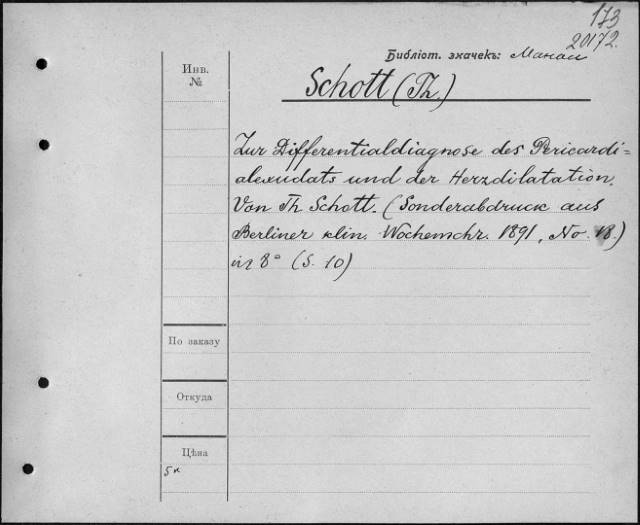 173
20172.
Библіот. значекъ:
Инв.
№
Schott (Th.)
Zur Differentialdiagnose des Pericardi-
alexudats und der Herzdilatation.
Von Th. Schott. (Sonderabdruck aus
Berliner klin. Wochenschr. 1891, No. 18.)
in 8° (S. 10)
По заказу
Откуда
Цѣна
5к